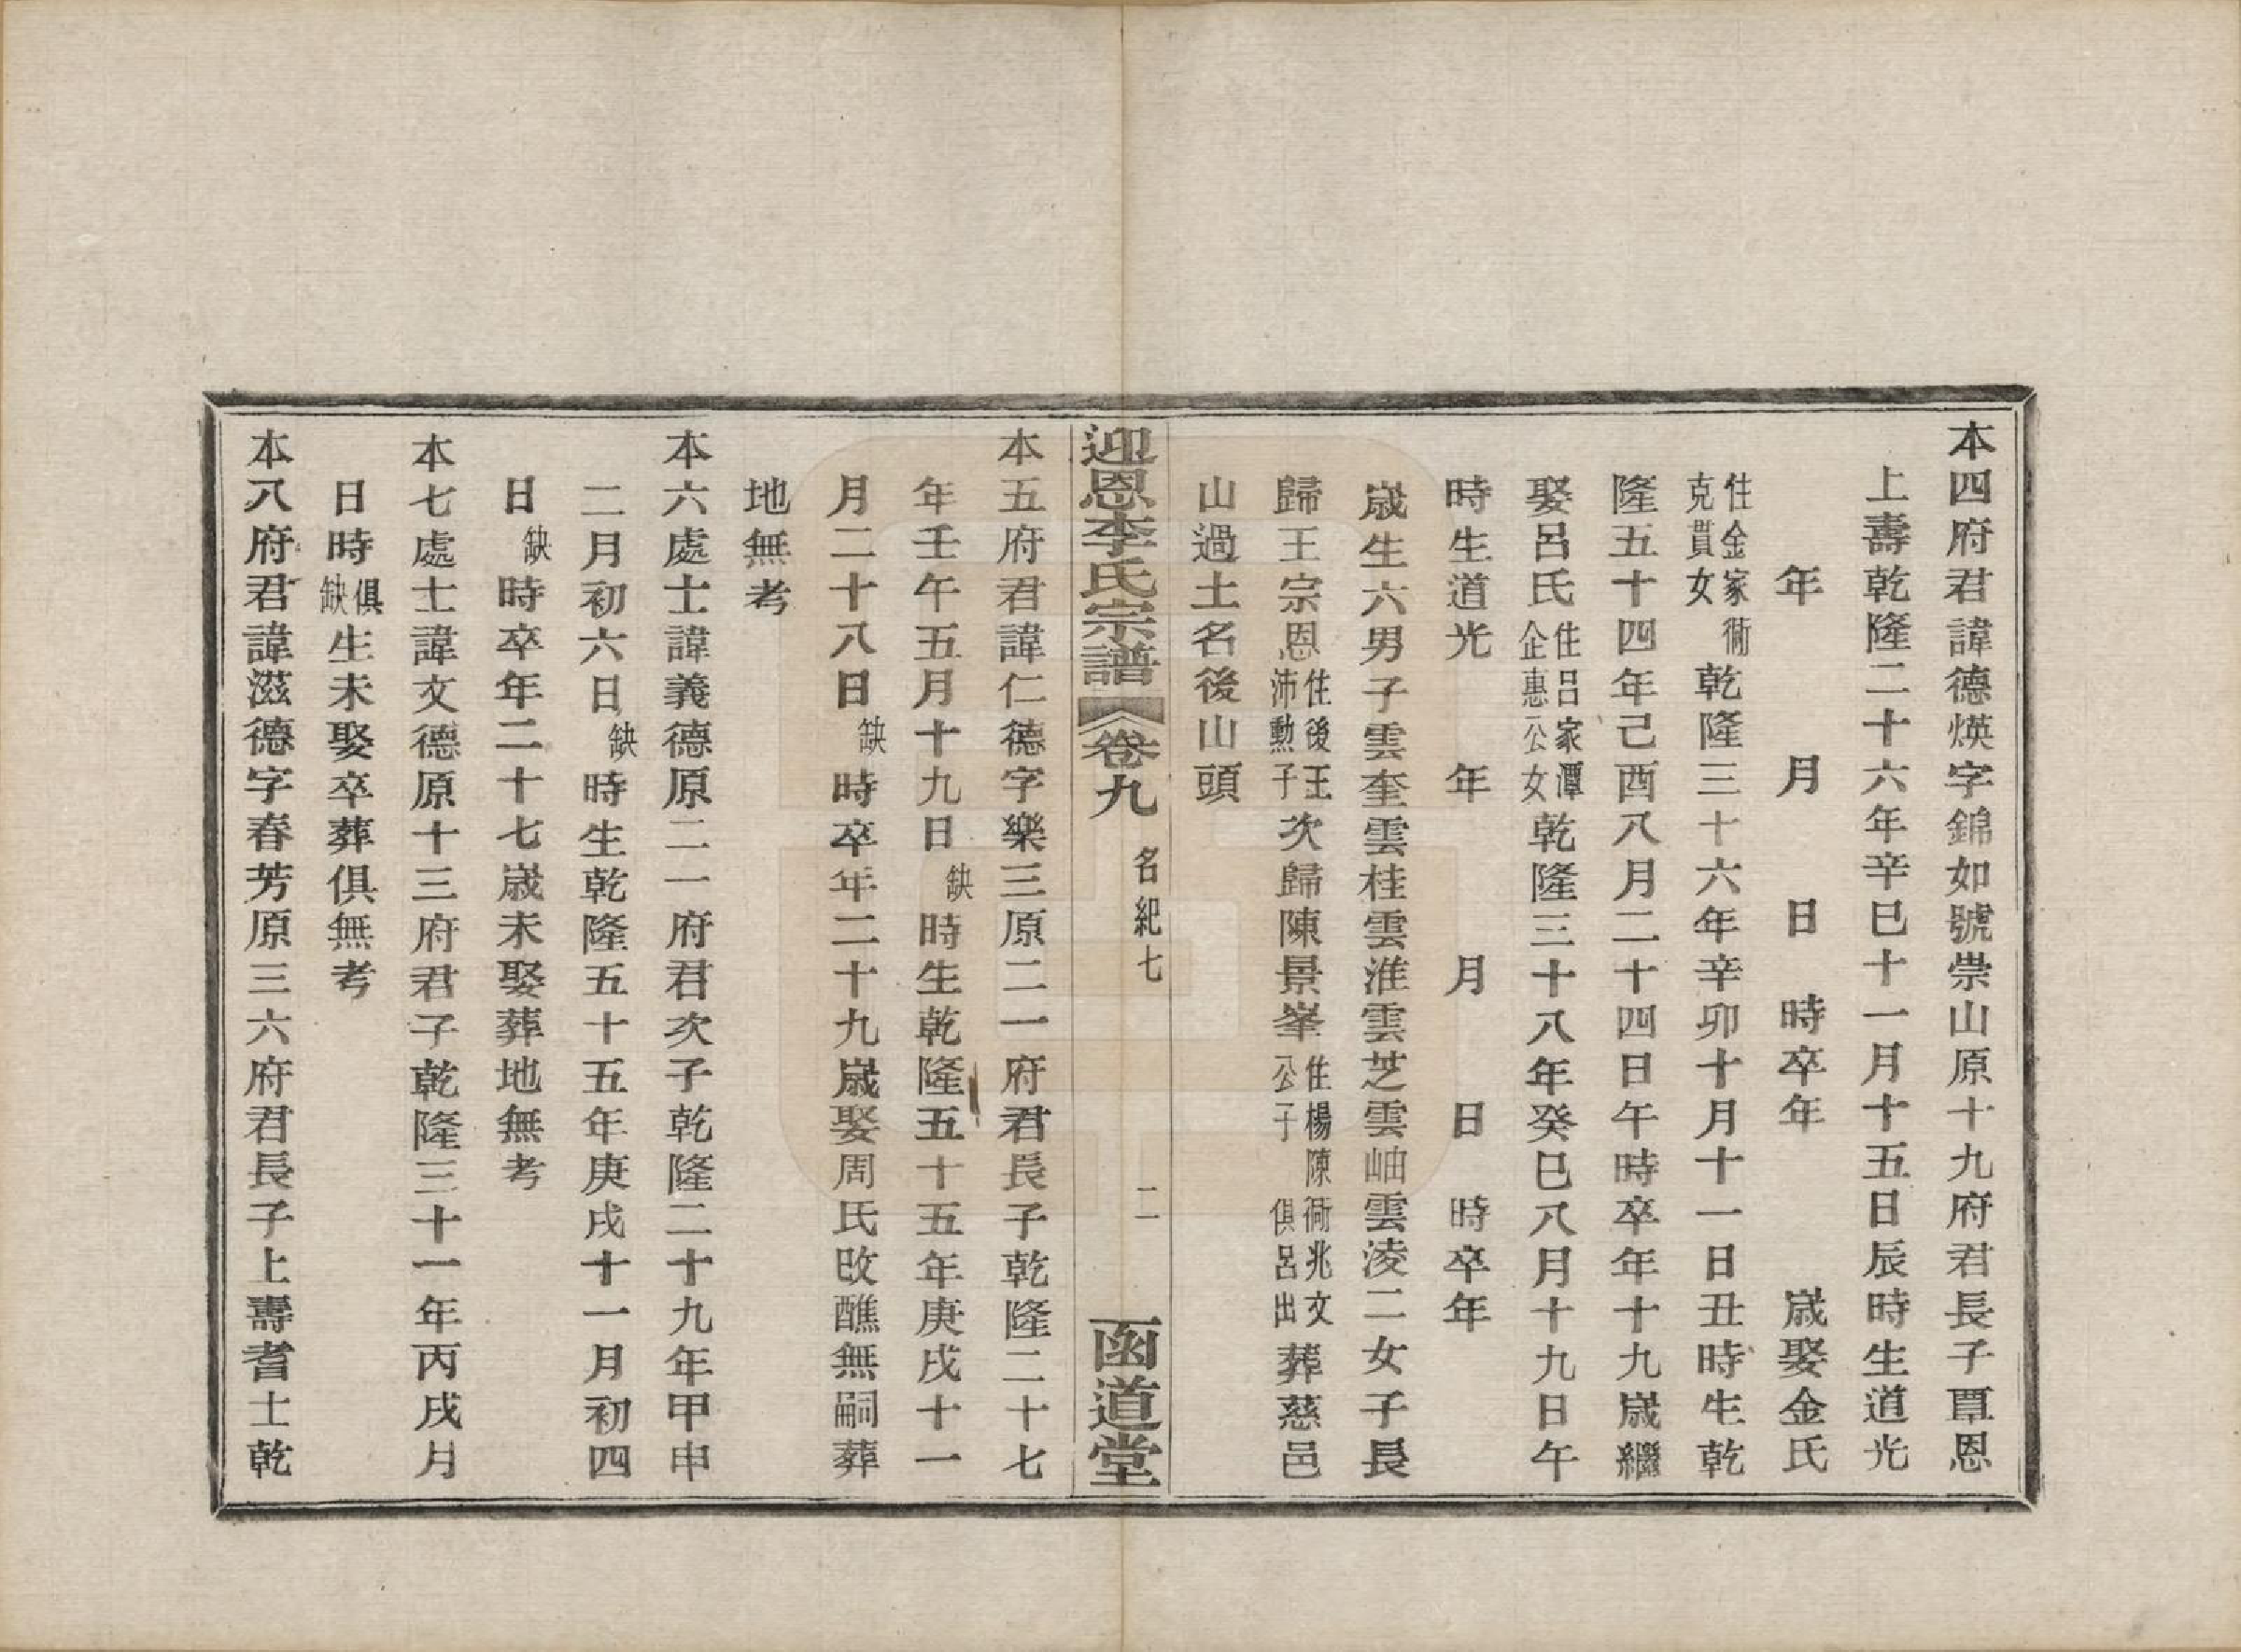 本四府君諱德煐字錦如號崇山原十九府君長子覃恩
上壽乾隆二十六年辛巳十一月十五日辰時生道光
年　月　日　時卒年　歲娶金氏
住金家衕克貫女乾隆三十六年辛卯十月十一日丑時生乾
隆五十四年己酉八月二十四日午時卒年十九歲繼
娶呂氏住呂家潭企惠公女乾隆三十八年癸巳八月十九日午
時生道光　年　月　日　時卒年
歲生六男子雲奎雲桂雲淮雲芝雲岫雲淩二女子長
歸王宗恩住後王沛勳子次歸陳景峯住楊陳衕兆文公子俱呂出葬慈邑
山過土名後山頭
迎恩李氏宗譜　卷九　名紀七　二　函道堂
本五府君諱仁德字樂三原二一府君長子乾隆二十七
年壬午五月十九日缺時生乾隆五十五年庚戌十一
月二十八日缺時卒年二十九歲娶周氏改醮無嗣葬
地無考
本六處士諱義德原二一府君次子乾隆二十九年甲申
二月初六日缺時生乾隆五十五年庚戌十一月初四
日缺時卒年二十七歲未娶葬地無考
本七處士諱文德原十三府君子乾隆三十一年丙戌月
日時俱缺生未娶卒葬俱無考
本八府君諱滋德字春芳原三六府君長子上壽耆士乾